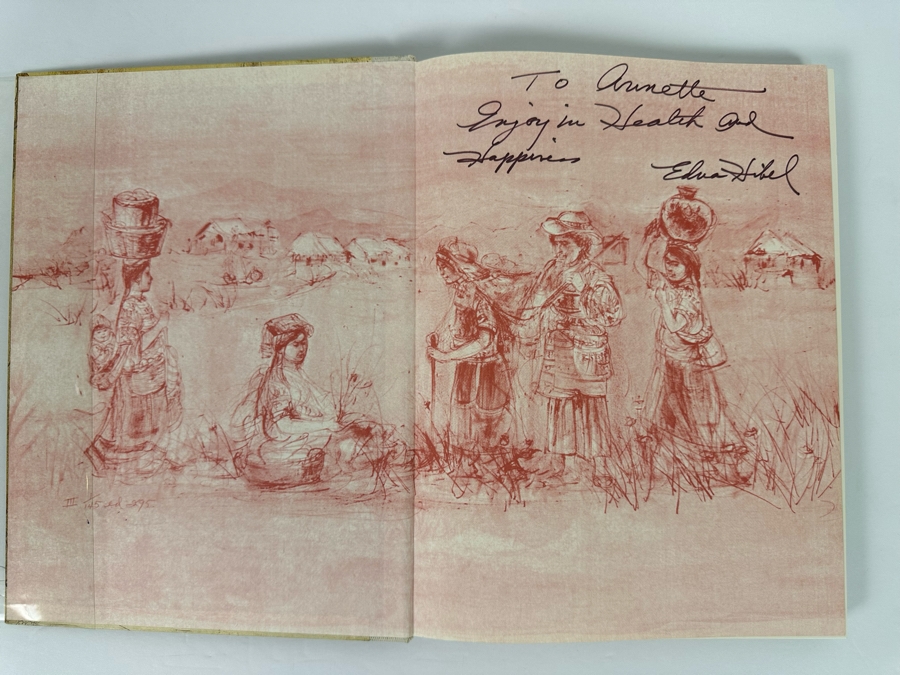 To Annette
Enjoy in Health and
Happiness
Edna Hibel
III
ed 295